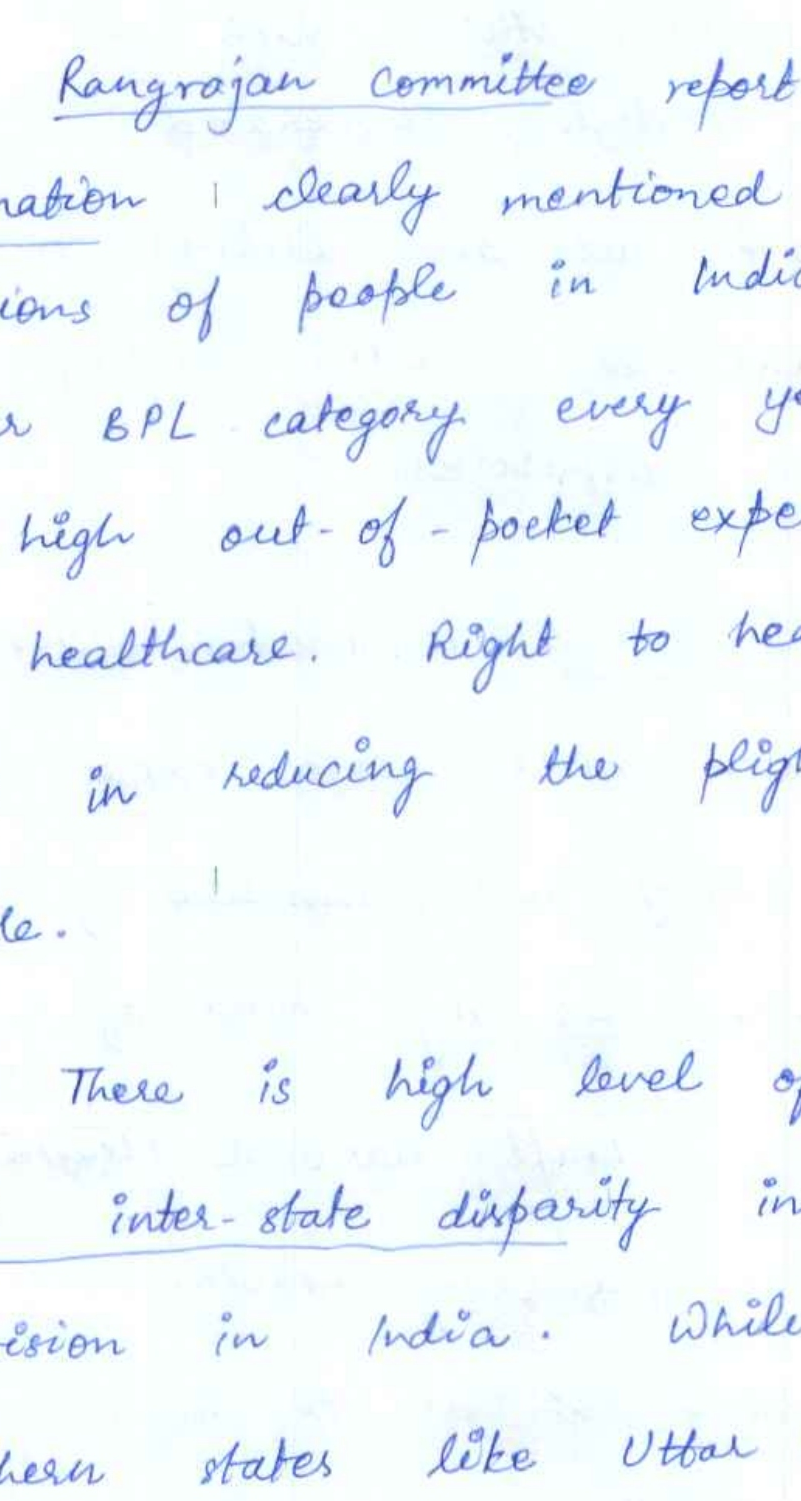 Rangrajan Committee report
nation clearly mentioned
ions of people in India
r BPL category every ye
high out-of-pocket expe
healthcare. Right to hea
in reducing the pligh
le.
There is high level of
inter-state disparity in
ision in India. While
hern states like Uttar